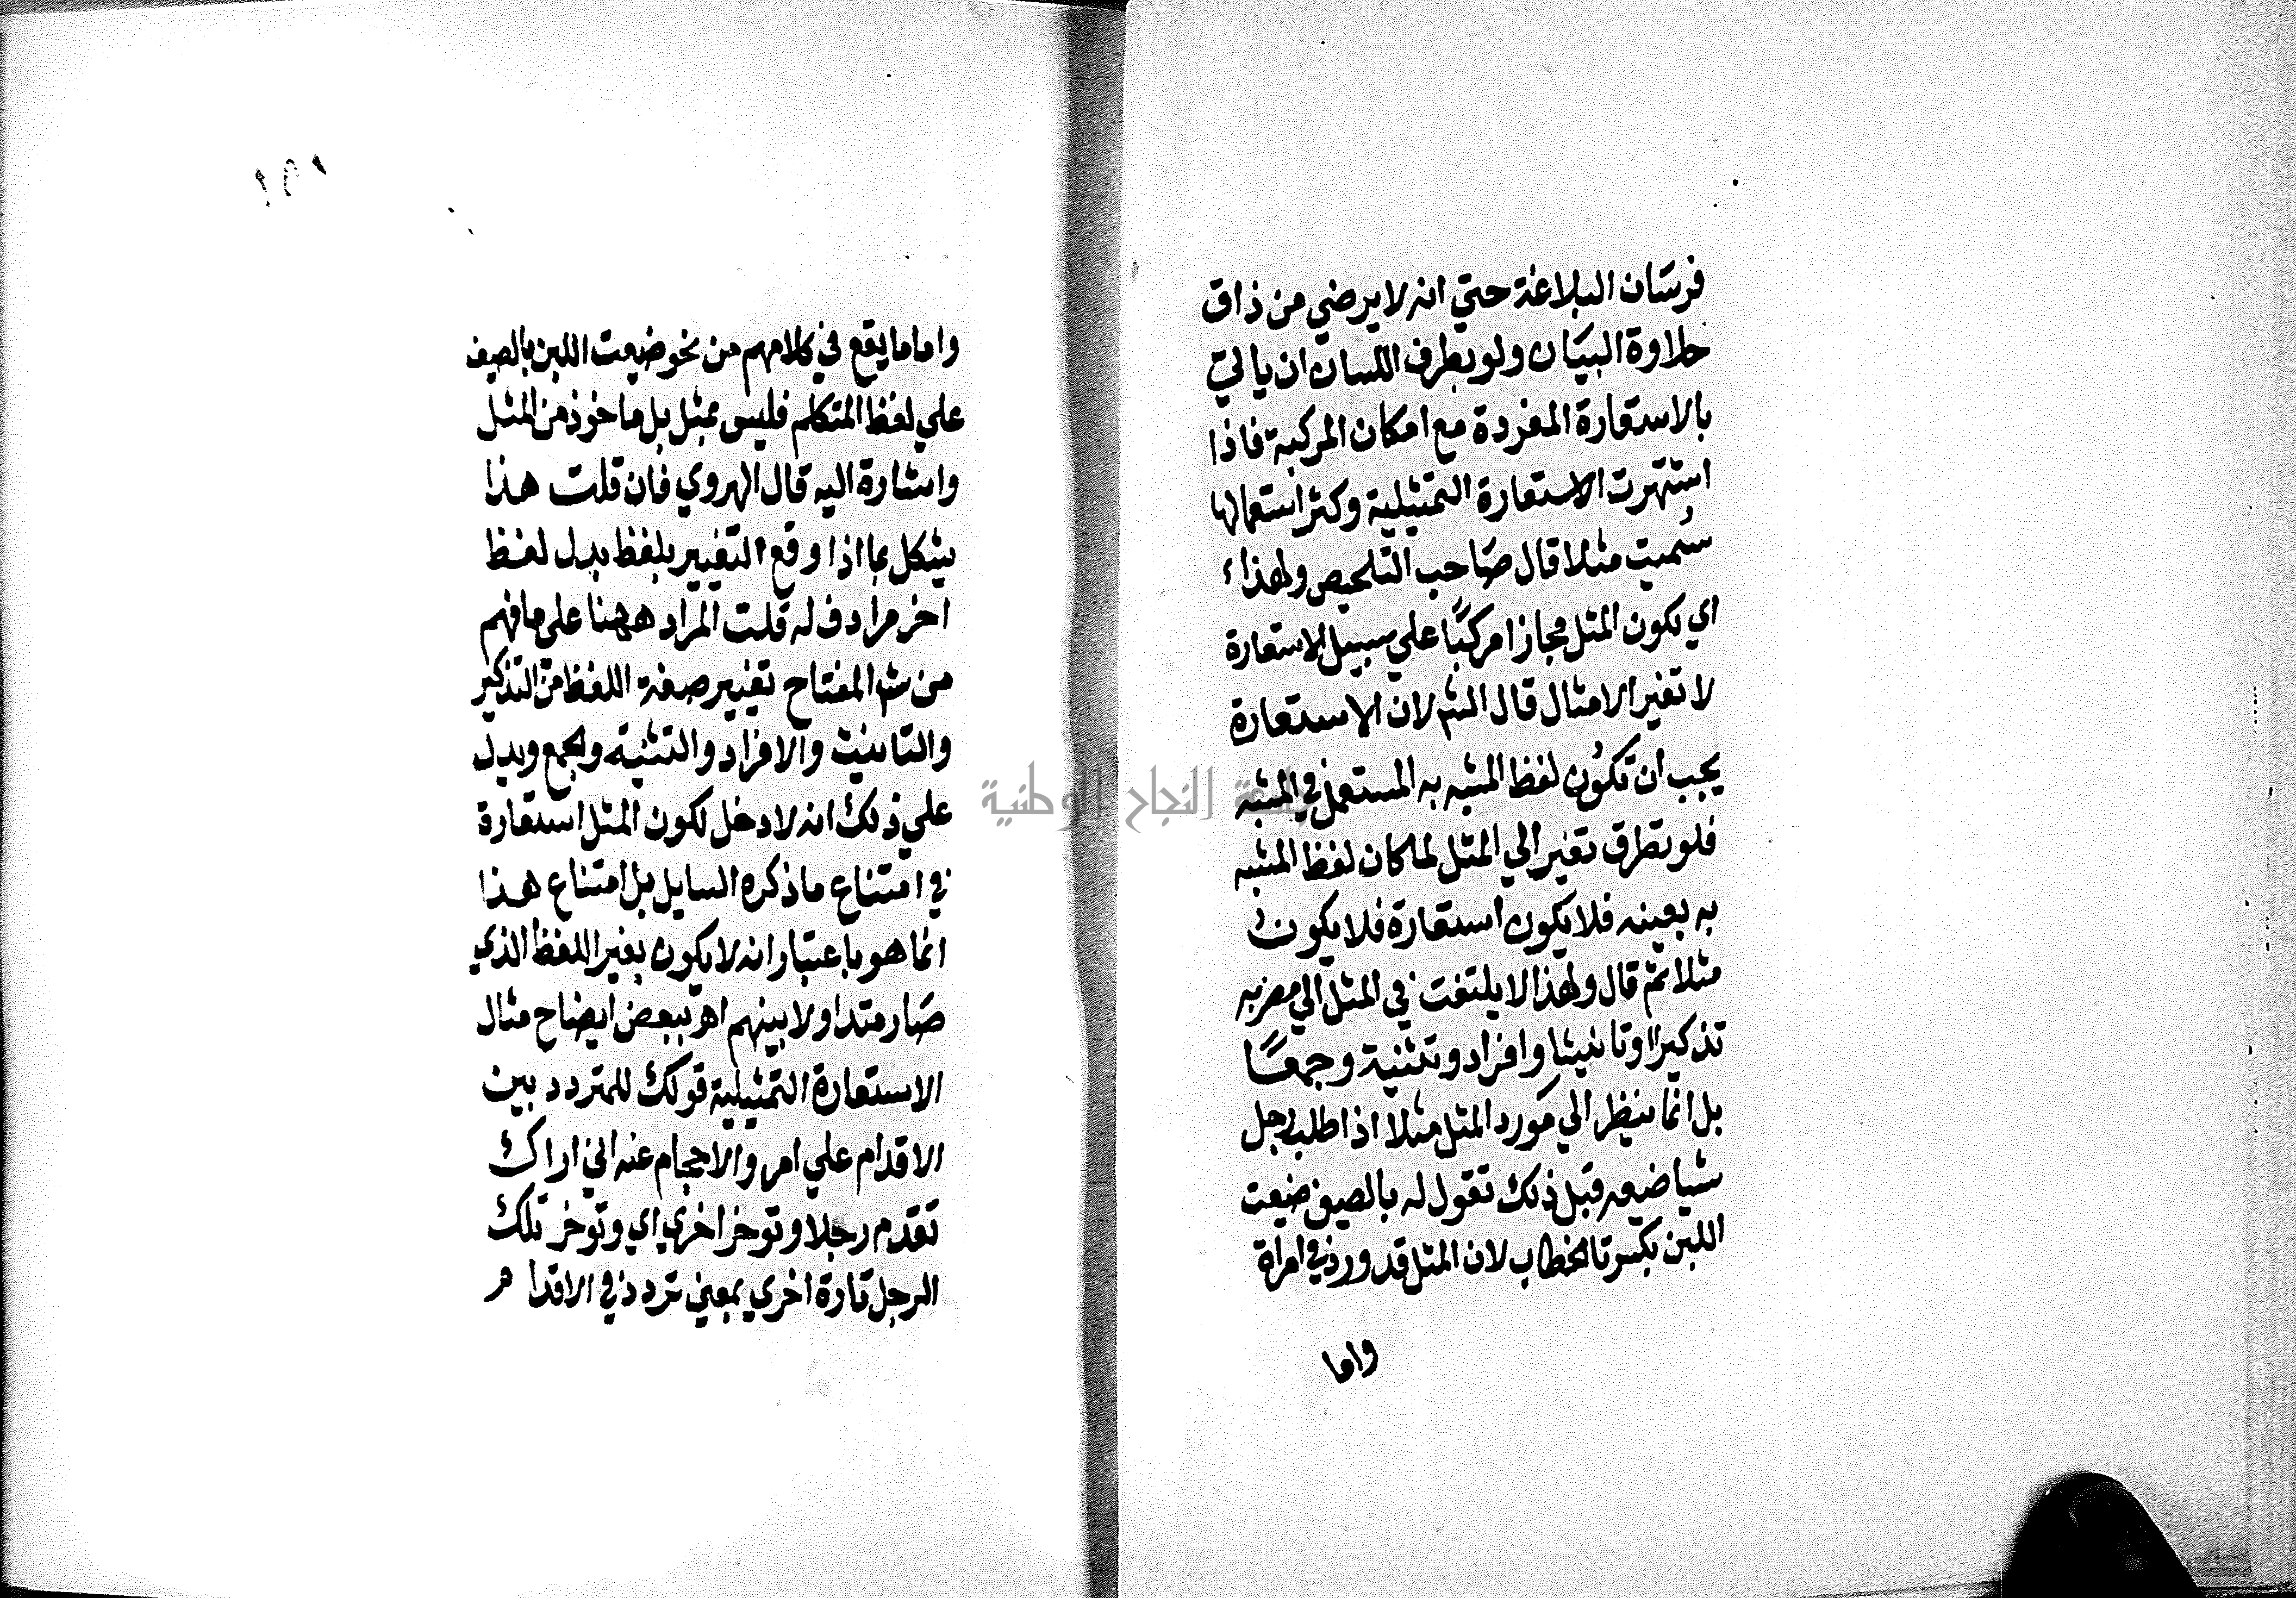 فرسان البلاغة حتي انه لا يرضي من ذاق
حلاوة البيان ولو بطرف اللسان ان ياتي
بالاستعارة المفردة مع امكان المركبة فاذا
اشتهرت الاستعارة التمثيلية وكثر استعمالها
سُميت مثلا قال صاحب التلخيص ولهذا
اي يكون المثل مجازا مركبًا علي سبيل الاستعارة
لا تغير الامثال قال الش لان الاستعارة
يجب ان تكون لفظ المشبه به المستعمل في المشبه
فلو تطرق تغير الي المثل لما كان لفظ المشبه
به بعينه فلا يكون استعارة فلا يكون
مثلا ثم قال ولهذا لا يلتفت في المثل الي مضربه
تذكيرًا وتانيثا وافراد وتثنية وجمعًا
بل انما ينظر الي مورد المثل مثلا اذا طلب رجل
شيا ضيعه قبل ذلك تقول له بالصيف ضيعت
اللبن بكسر تا الخطاب لان المثل قد ورد في امراة
واما
واما ما يقع في كلامهم من نحو ضيعت اللبن بالصيف
علي لفظ المتكلم فليس بمثل بل ماخوذ من المثل
واشارة اليه قال الهروي فان قلت هذا
يشكل بما اذا وقع التغيير بلفظ بدل لفظ
اخر مرادف له قلت المراد ههنا علي ما فهم
من ش المفتاح تغيير صفة اللفظ من التذكير
والتانيث والافراد والتثنية والجمع ويدل
علي ذلك انه لا دخل لكون المثل استعارة
في امتناع ما ذكره السايل بل امتناع هذا
انما هو باعتبار انه لا يكون بغير اللفظ الذي
صار متداولا بينهم اهـ ببعض ايضاح مثال
الاستعارة التمثيلية قولك للمتردد بين
الاقدام علي امر والاحجام عنه اني اراك
تقدم رجلا وتوخر اخري اي وتوخر تلك
الرجل تارة اخري بمعني تردد في الاقدام
جامعة النجاح الوطنية